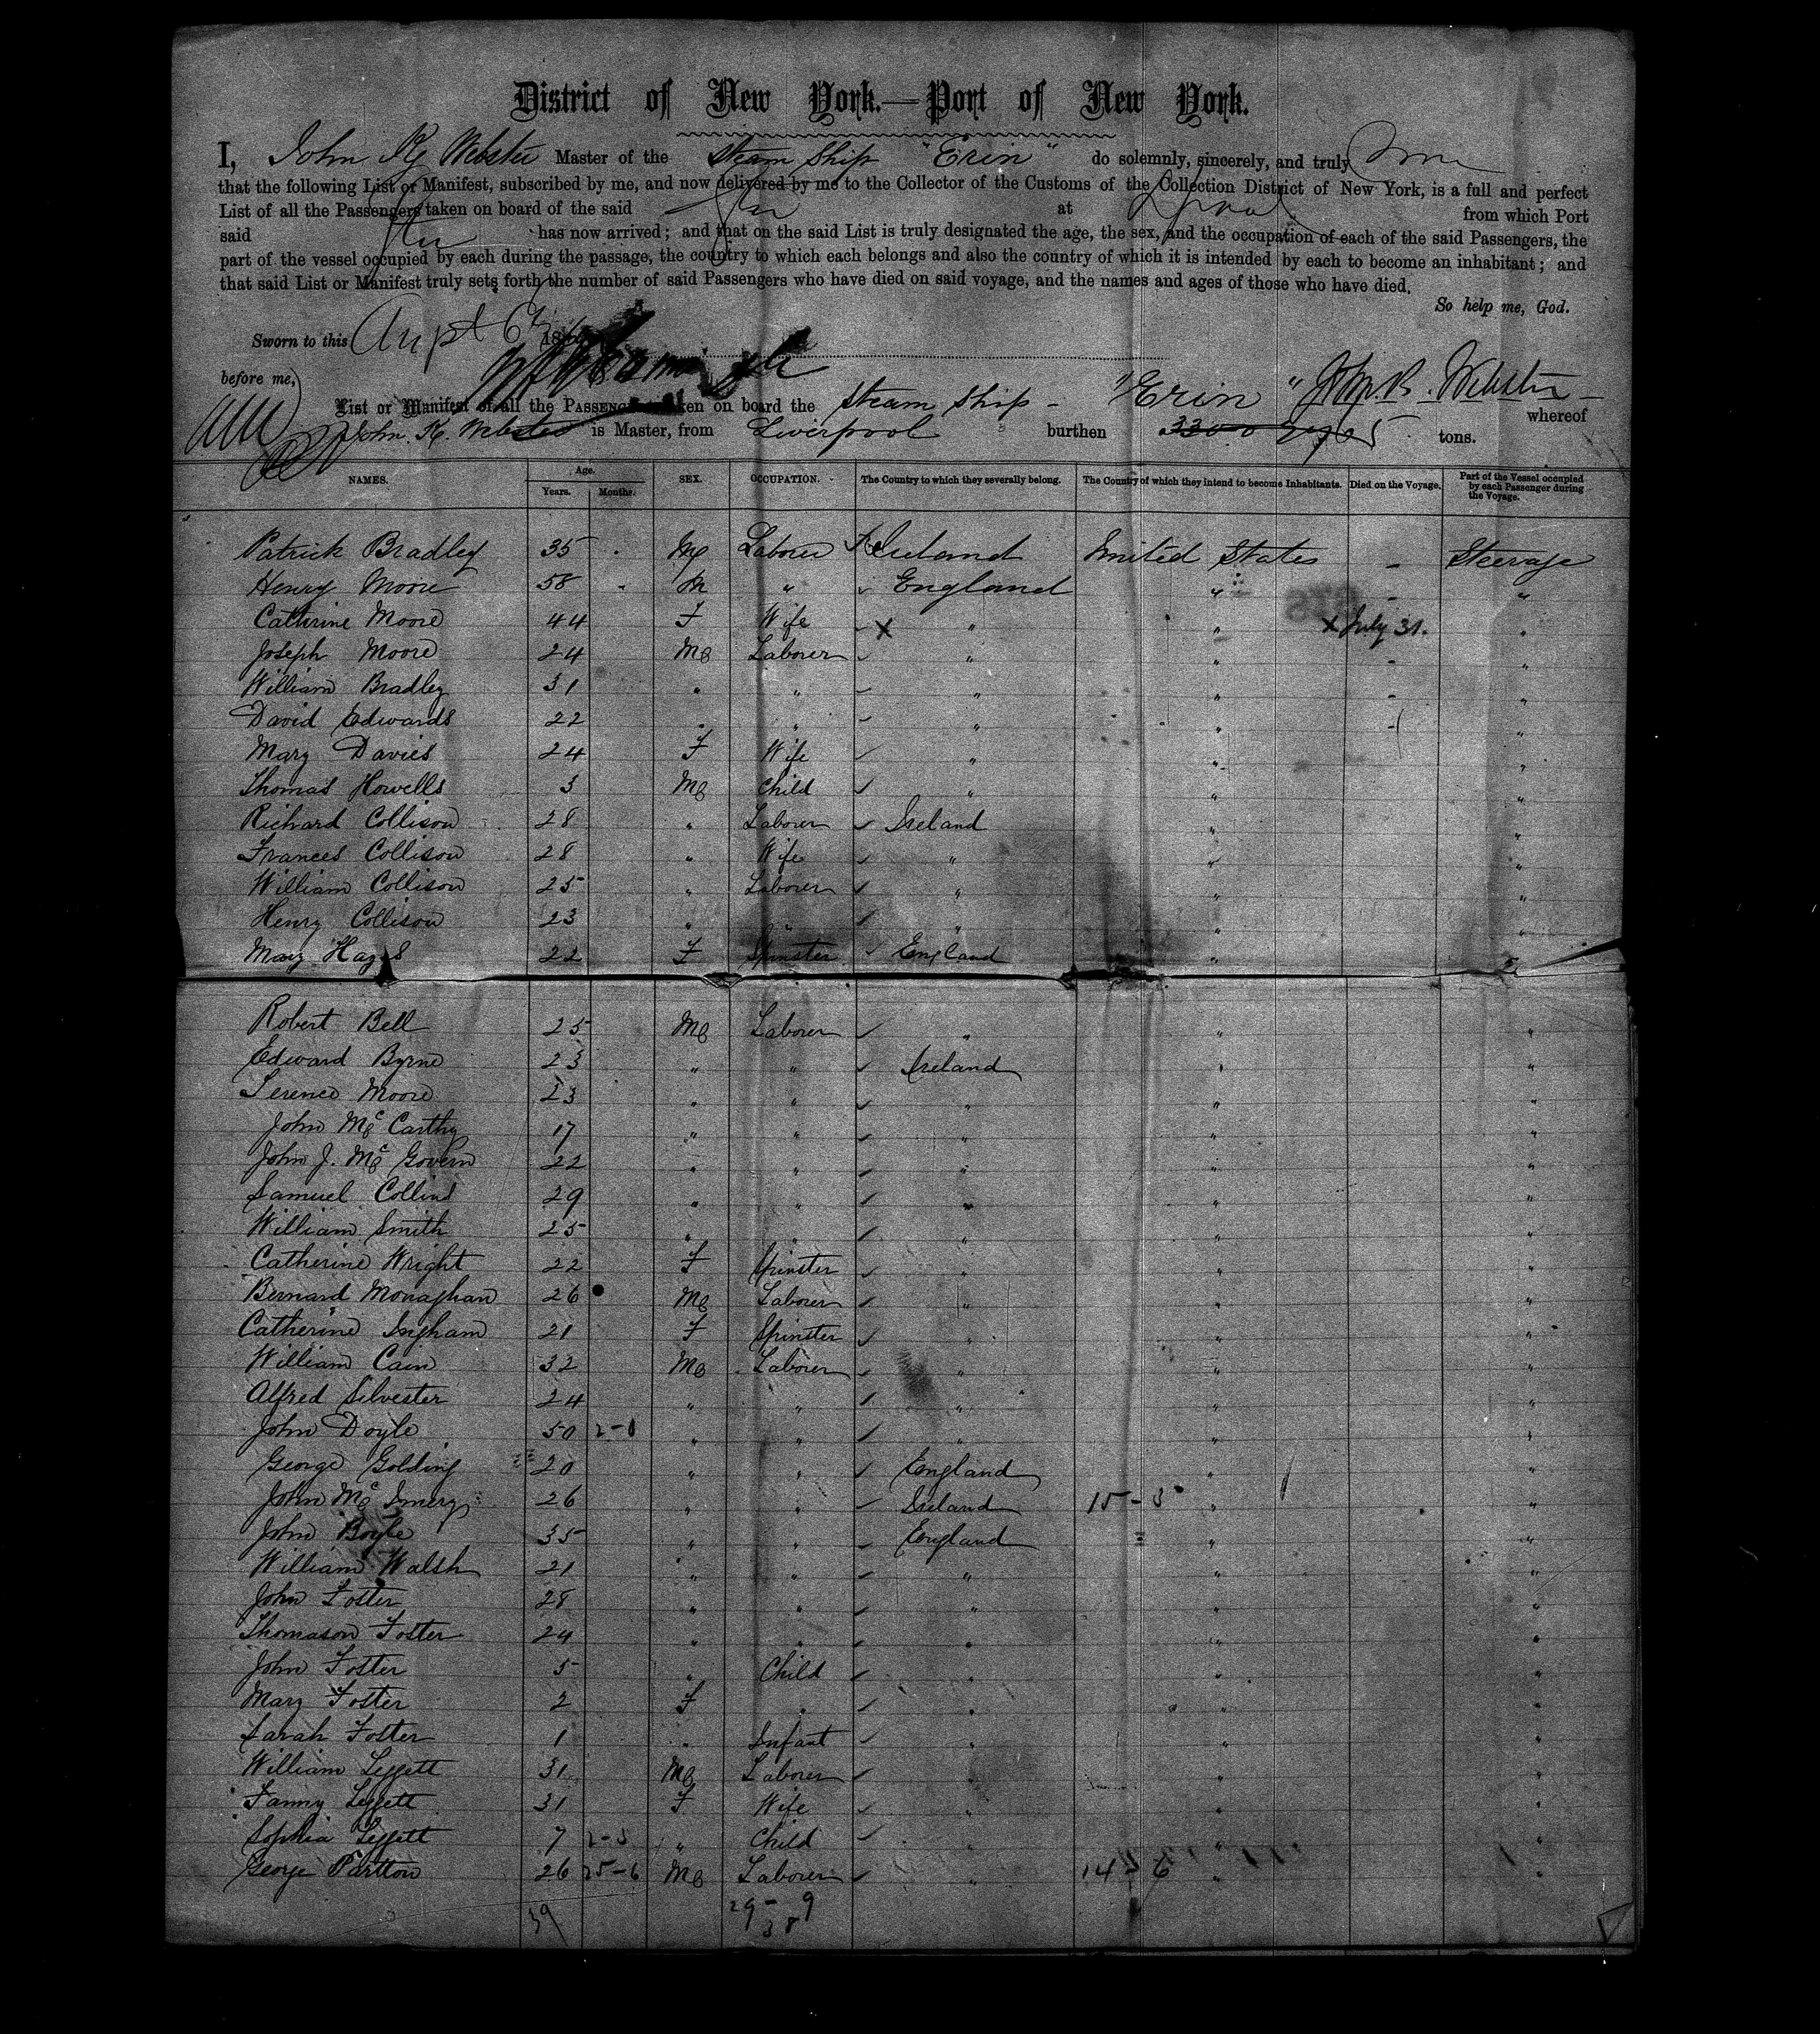 District of New York.—Port of New York.
I, John R Webster Master of the Steam Ship "Erin" do solemnly, sincerely, and truly
that the following List or Manifest, subscribed by me, and now delivered by me to the Collector of the Customs of the Collection District of New York, is a full and perfect
List of all the Passengers taken on board of the said Str at Lpool from which Port
said Str has now arrived; and that on the said List is truly designated the age, the sex, and the occupation of each of the said Passengers, the
part of the vessel occupied by each during the passage, the country to which each belongs and also the country of which it is intended by each to become an inhabitant; and
that said List or Manifest truly sets forth the number of said Passengers who have died on said voyage, and the names and ages of those who have died.
So help me, God.
Sworn to this Augst 6th 186
before me, Jno. R. Webster
List or Manifest of all the Passengers taken on board the Steam Ship - "Erin" whereof
John. R. Webster is Master, from Liverpool burthen 3300 tons.
NAMES. Age. Years. Months. SEX. OCCUPATION. The Country to which they severally belong. The Country of which they intend to become Inhabitants. Died on the Voyage. Part of the Vessel occupied by each Passenger during the Voyage.
Patrick Bradley 35 M Laborer Ireland United States - Steerage
Henry Moore 58 M " England " - "
Cathrine Moore 44 F Wife X " " X July 31. "
Joseph Moore 24 M Laborer " " - "
William Bradley 31 " " " " - "
David Edwards 22 " " " " - "
Mary Davies 24 F Wife " " "
Thomas Howells 3 M Child " " "
Richard Collison 28 " Laborer Ireland " "
Frances Collison 28 " Wife " " "
William Collison 25 " Laborer " " "
Henry Collison 23 " " " " "
Mary Hayes 22 F Spinster England " "
Robert Bell 25 M Laborer " " "
Edward Byrne 23 " " Ireland " "
Terence Moore 23 " " " " "
John Mc Carthy 17 " " " " "
John J. Mc Govern 22 " " " " "
Samuel Collins 29 " " " " "
William Smith 25 " " " " "
Catherine Wright 22 F Spinster " " "
Bernard Monaghan 26 M Laborer " " "
Catherine Ingham 21 F Spinster " " "
William Cain 32 M Laborer " " "
Alfred Silvester 24 " " " " "
John Doyle 50 " " " " "
George Golding 20 " " England " "
John Mc 26 " " Ireland 15 - 3 " "
John Boyle 35 " " England " "
William Walsh 21 " " " " "
John Foster 28 " " " " "
Thomason Foster 24 " " " " "
John Foster 5 " Child " " "
Mary Foster 2 F " " " "
Sarah Foster 1 " Infant " " "
William Leggett 31 M Laborer " " "
Fanny Leggett 31 F Wife " " "
Sophia Leggett 7 " Child " " "
George Partton 26 25-6 M Laborer " 14 6 " "
39 29 - 9
38